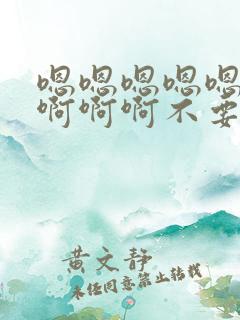 嗯嗯嗯嗯嗯
啊啊啊不要
黄文静
未经同意禁止转载